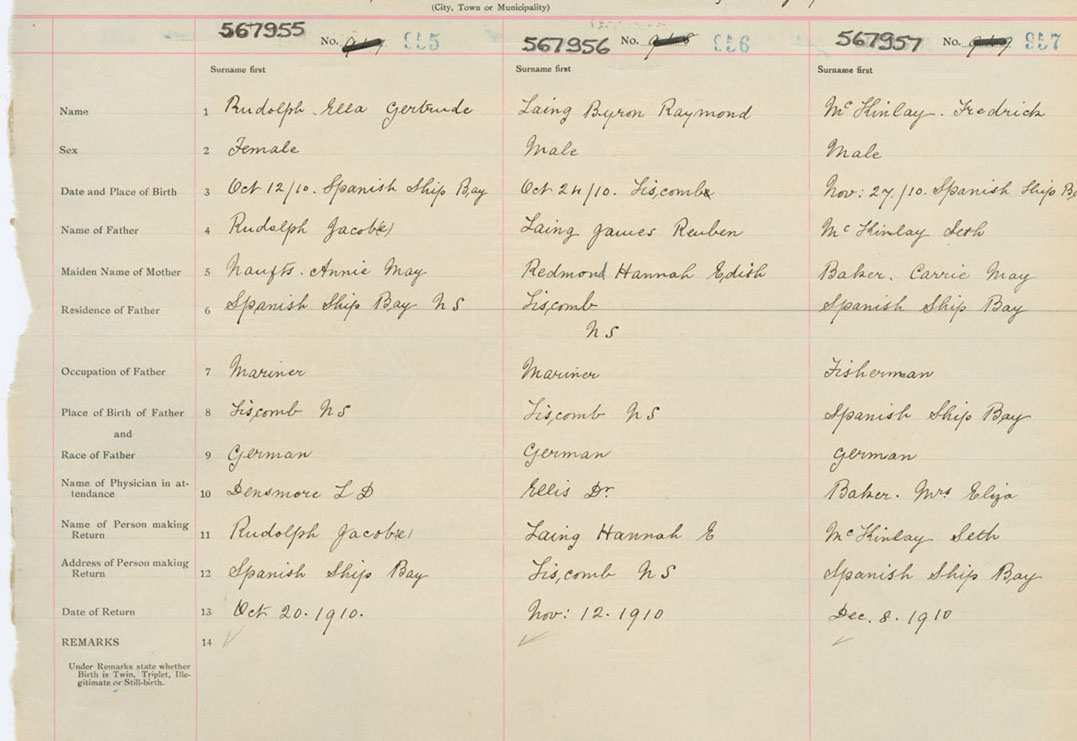 (City, Town or Municipality)
567955 No. 955 567956 No. 956 567957 No. 957
Surname first Surname first Surname first
Name 1 Rudolph Ella Gertrude Laing Byron Raymond McKinlay. Fredrick
Sex 2 Female Male Male
Date and Place of Birth 3 Oct 12/10. Spanish Ship Bay Oct 24/10. Liscomb Nov: 27/10. Spanish Ship
Name of Father 4 Rudolph Jacob Laing James Reuben McKinlay Seth
Maiden Name of Mother 5 Naufts. Annie May Redmond Hannah Edith Baker. Carrie May
Residence of Father 6 Spanish Ship Bay NS Liscomb Spanish Ship Bay
NS
Occupation of Father 7 Mariner Mariner Fisherman
Place of Birth of Father 8 Liscomb NS Liscomb NS Spanish Ship Bay
and
Race of Father 9 German German German
Name of Physician in at-
tendance 10 Densmore L D Ellis Dr. Baker. Mrs Eliza
Name of Person making
Return 11 Rudolph Jacob Laing Hannah E McKinlay Seth
Address of Person making
Return 12 Spanish Ship Bay Liscomb NS Spanish Ship Bay
Date of Return 13 Oct 20. 1910. Nov: 12. 1910 Dec. 8. 1910
REMARKS 14
Under Remarks state whether
Birth is Twin, Triplet, Ille-
gitimate or Still-birth.